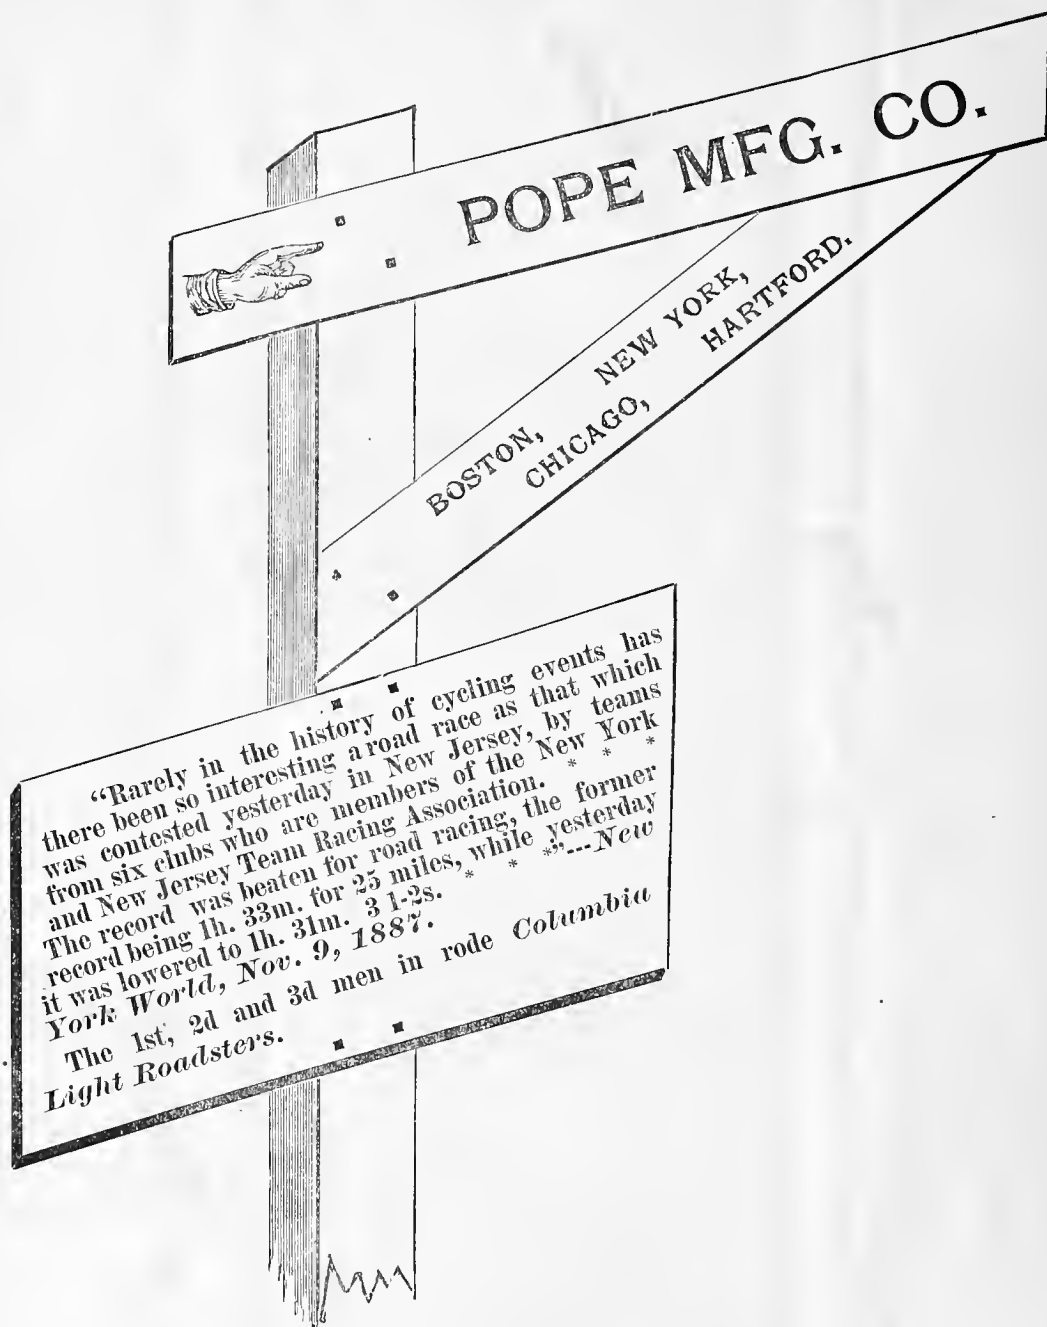 POPE MFG. CO.
BOSTON, NEW YORK,
CHICAGO, HARTFORD.
"Rarely in the history of cycling events has
there been so interesting a road race as that which
was contested yesterday in New Jersey, by teams
from six clubs who are members of the New York
and New Jersey Team Racing Association. * * *
The record was beaten for road racing, the former
record being 1h. 33m. for 25 miles, while yesterday
it was lowered to 1h. 31m. 3 1-2s. * * *"---New
York World, Nov. 9, 1887.
The 1st, 2d and 3d men in rode Columbia
Light Roadsters.